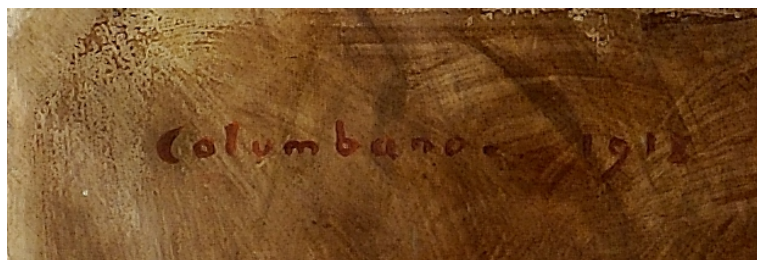 Columbano. 1912